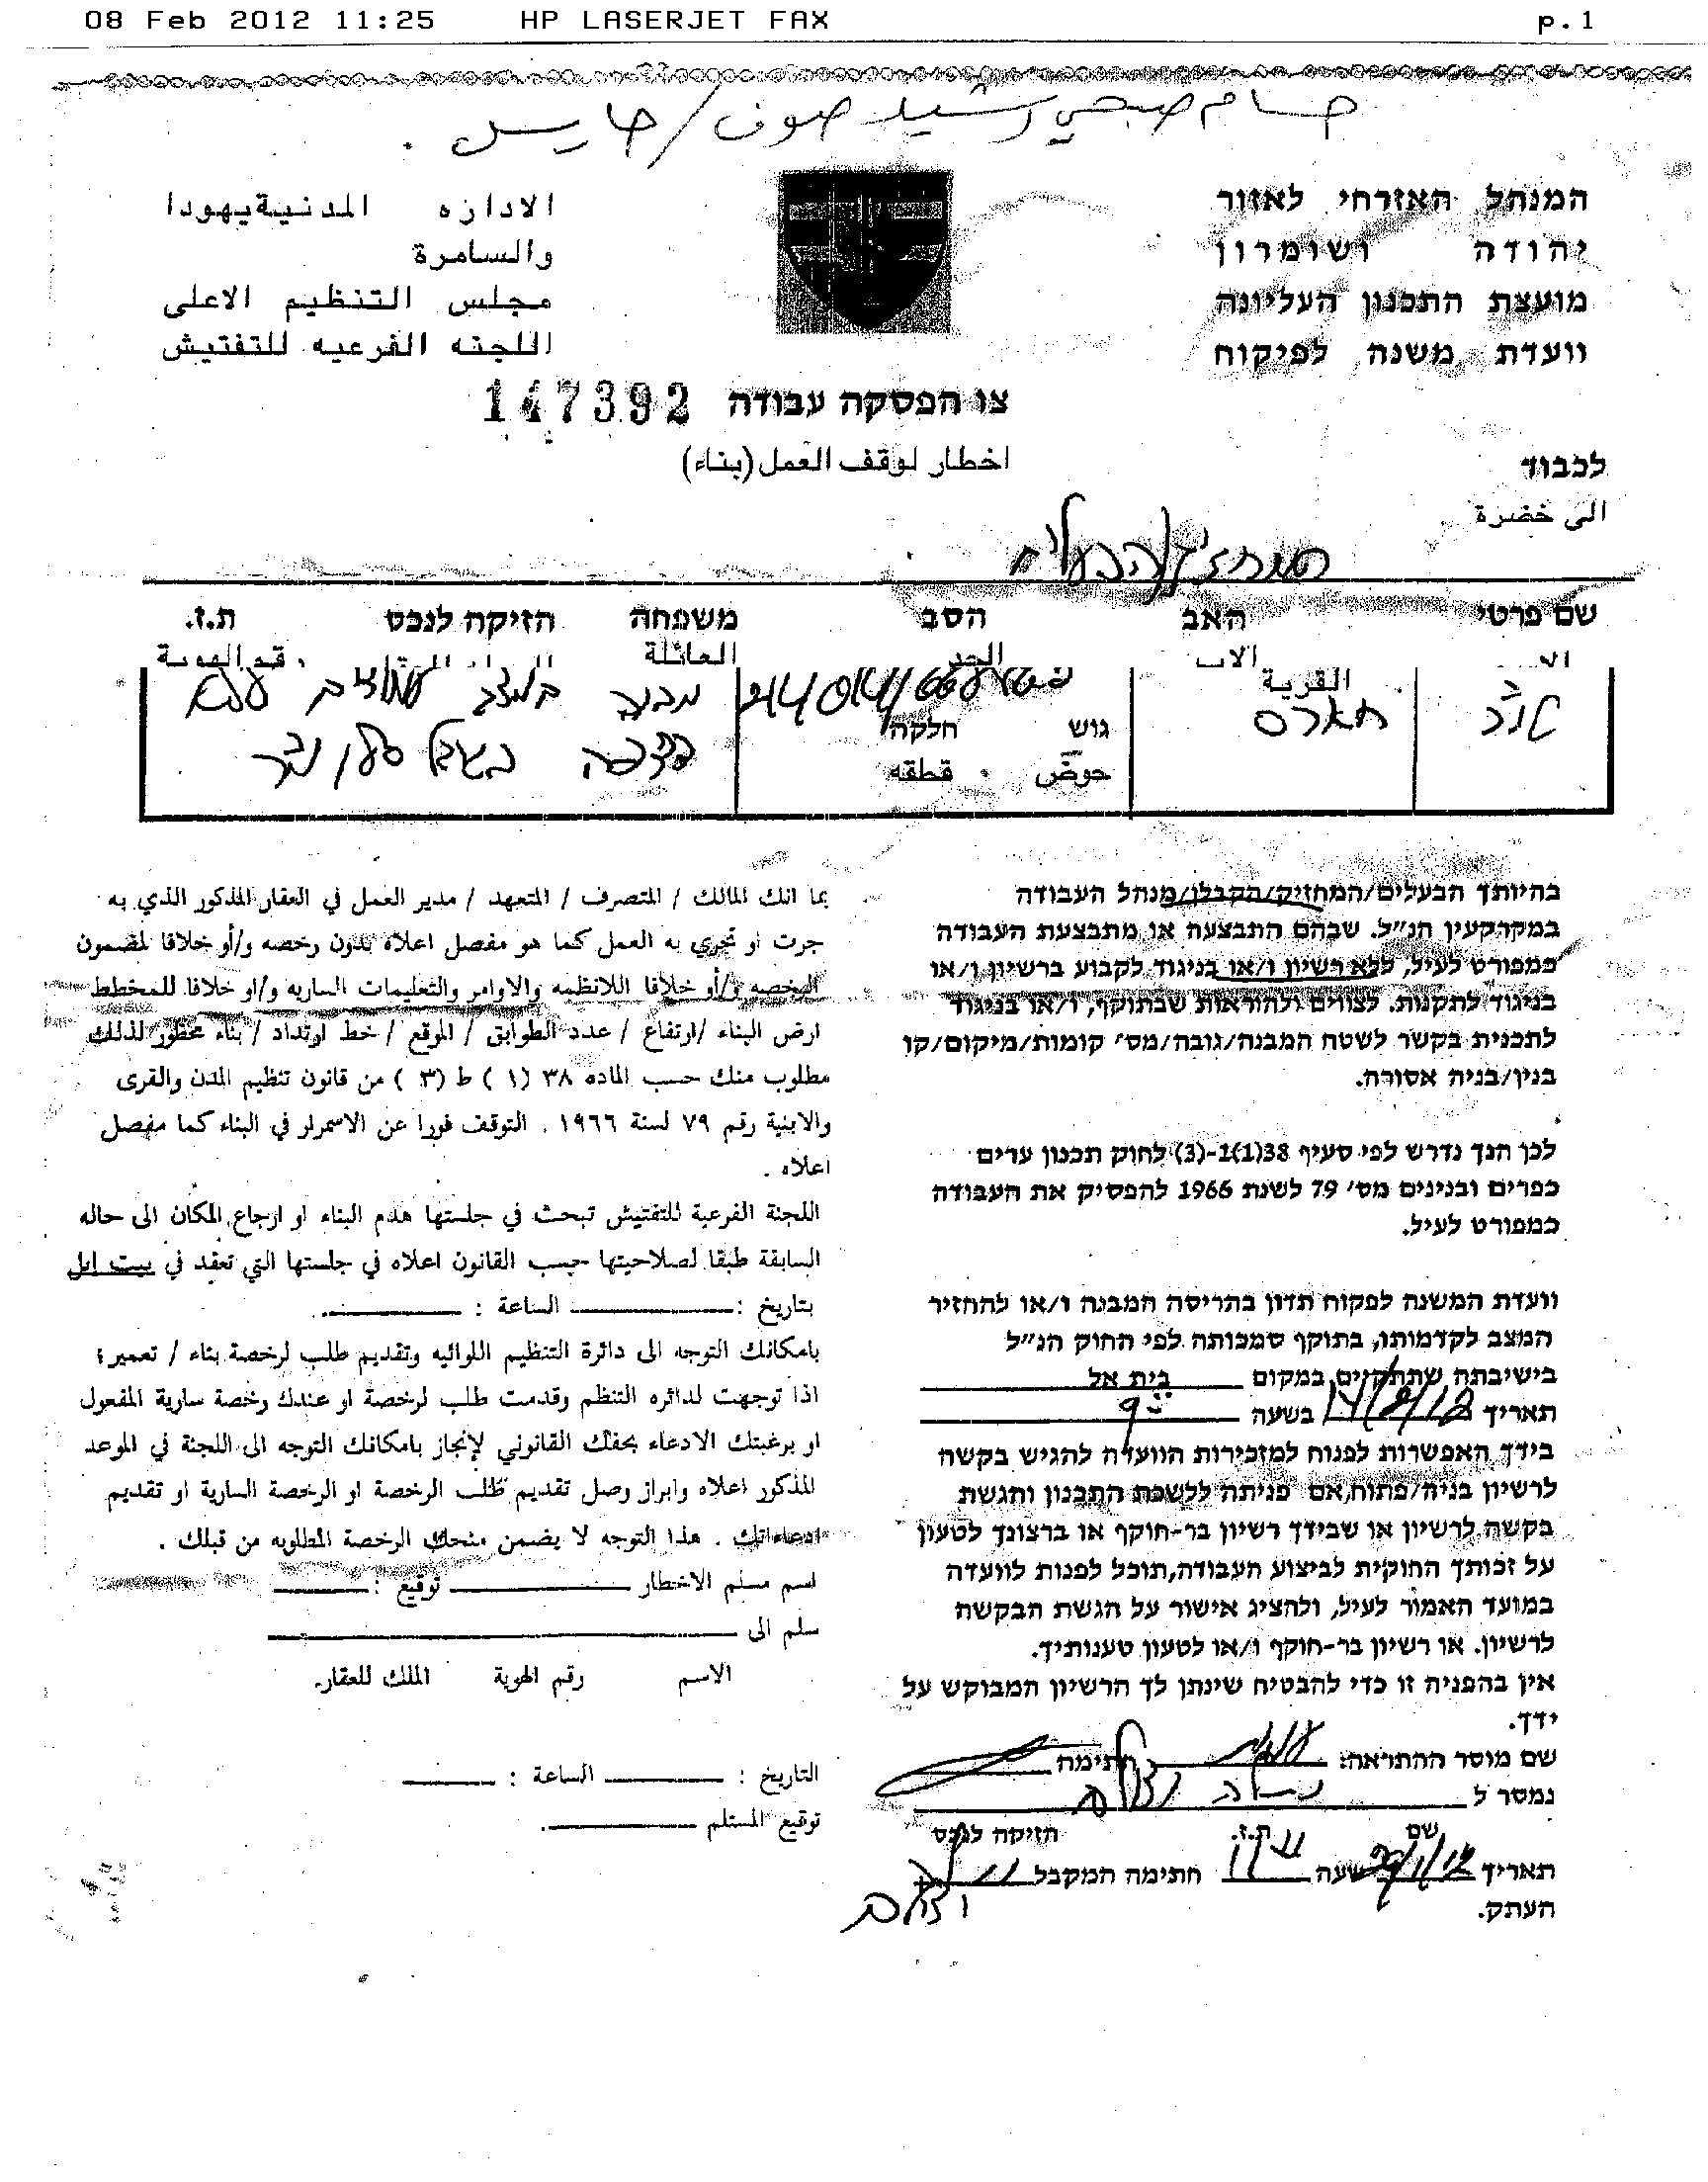 08 Feb 2012 11:25 HP LASERJET FAX p.1
حسام صبحي رشيد صوف / حارس .
המנהל האזרחי לאזור
יהודה ושומרון
מועצת התכנון העליונה
וועדת משנה לפיקוח
الاداره المدنية يهودا
والسامرة
مجلس التنظيم الاعلى
اللجنه الفرعيه للتفتيش
צו הפסקה עבודה 147392
اخطار لوقف العمل (بناء)
לכבוד
الى خضرة
המחזיק/הבעלים
שם פרטי האב הסב משפחה הזיקה לנכס ת.ז.
الاب الجد العائلة رقم الهوية
القرية
חארס
גוש חלקה
حوض قطعه
מבנה
בהיותך הבעלים/המחזיק/הקבלן/מנהל העבודה
במקרקעין הנ״ל. שבהם התבצעה או מתבצעת העבודה
כמפורט לעיל, ללא רשיון ו/או בניגוד לקבוע ברשיון ו/או
בניגוד לתקנות. לצווים ולהוראות שבתוקף, ו/או בניגוד
לתכנית בקשר לשטח המבנה/גובה/מס׳ קומות/מיקום/קו
בנין/בניה אסורה.
לכן הנך נדרש לפי סעיף 38(1)1-(3) לחוק תכנון ערים
כפרים ובנינים מס׳ 79 לשנת 1966 להפסיק את העבודה
כמפורט לעיל.
וועדת המשנה לפקוח תדון בהריסה המבנה ו/או להחזיר
המצב לקדמותו, בתוקף סמכותה לפי החוק הנ״ל
בישיבתה שתתקיים במקום בית אל
תאריך 14/2/12 בשעה 9
בידך האפשרות לפנות למזכירות הוועדה להגיש בקשה
לרשיון בניה/פתוח, אם פניתה ללשכת התכנון והגשת
בקשה לרשיון או שבידך רשיון בר-תוקף או ברצונך לטעון
על זכותך החוקית לביצוע העבודה, תוכל לפנות לוועדה
במועד האמור לעיל, ולהציג אישור על הגשת הבקשה
לרשיון. או רשיון בר-תוקף ו/או לטעון טענותיך.
אין בהפניה זו כדי להבטיח שינתן לך הרשיון המבוקש על
ידך.
שם מוסר ההתראה: חתימה
נמסר ל
שם ת.ז. הזיקה לנכס
תאריך 29/1/12 שעה חתימה המקבל
העתק.
بما انك المالك / المتصرف / المتعهد / مدير العمل في العقار المذكور الذي به
جرت او تجري به العمل كما هو مفصل اعلاه بدون رخصه و/أو خلافا لمضمون
الرخصه و/أو خلافا للانظمه والاوامر والتعليمات الساريه و/او خلافا للمخطط
ارض البناء /ارتفاع / عدد الطوابق / الموقع / خط ارتداد / بناء محظور لذلك
مطلوب منك حسب الماده ٣٨ (١) ط (٣) من قانون تنظيم المدن والقرى
والابنية رقم ٧٩ لسنة ١٩٦٦ . التوقف فورا عن الاسمرلر في البناء كما مفصل
اعلاه .
اللجنة الفرعية للتفتيش تبحث في جلستها هدم البناء او ارجاع المكان الى حاله
السابقة طبقا لصلاحيتها حسب القانون اعلاه في جلستها التي تعقد في بيت ايل
بتاريخ : الساعة :
بامكانك التوجه الى دائرة التنظيم اللوائيه وتقديم طلب لرخصة بناء / تعمير ؛
اذا توجهت لدائره التنظم وقدمت طلب لرخصة او عندك رخصة سارية المفعول
او برغبتك الادعاء بحقك القانوني لإنجاز بامكانك التوجه الى اللجنة في الموعد
المذكور اعلاه وابراز وصل تقديم طلب الرخصة او الرخصة السارية او تقديم
ادعاءاتك . هذا التوجه لا يضمن منحك الرخصة المطلوبه من قبلك .
اسم مسلم الاخطار توقيع :
سلم الى
الاسم رقم الهوية الملك للعقار.
التاريخ : الساعة :
توقيع المستلم